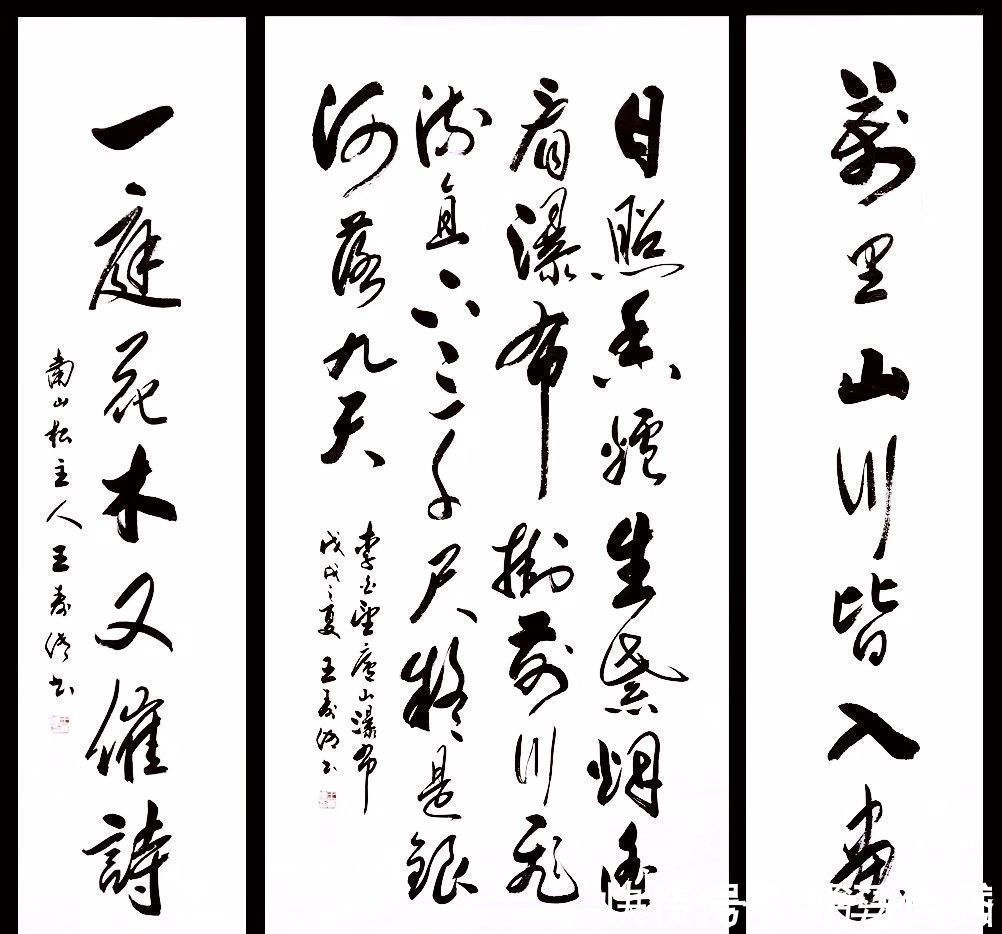 萬里山川皆入畫
日照香爐生紫烟遥
看瀑布掛前川飛
流直下三千尺疑是銀
河落九天
李白望廬山瀑布
戊戌之夏 王寿书
一庭花木又催詩
南山松主人王寿书